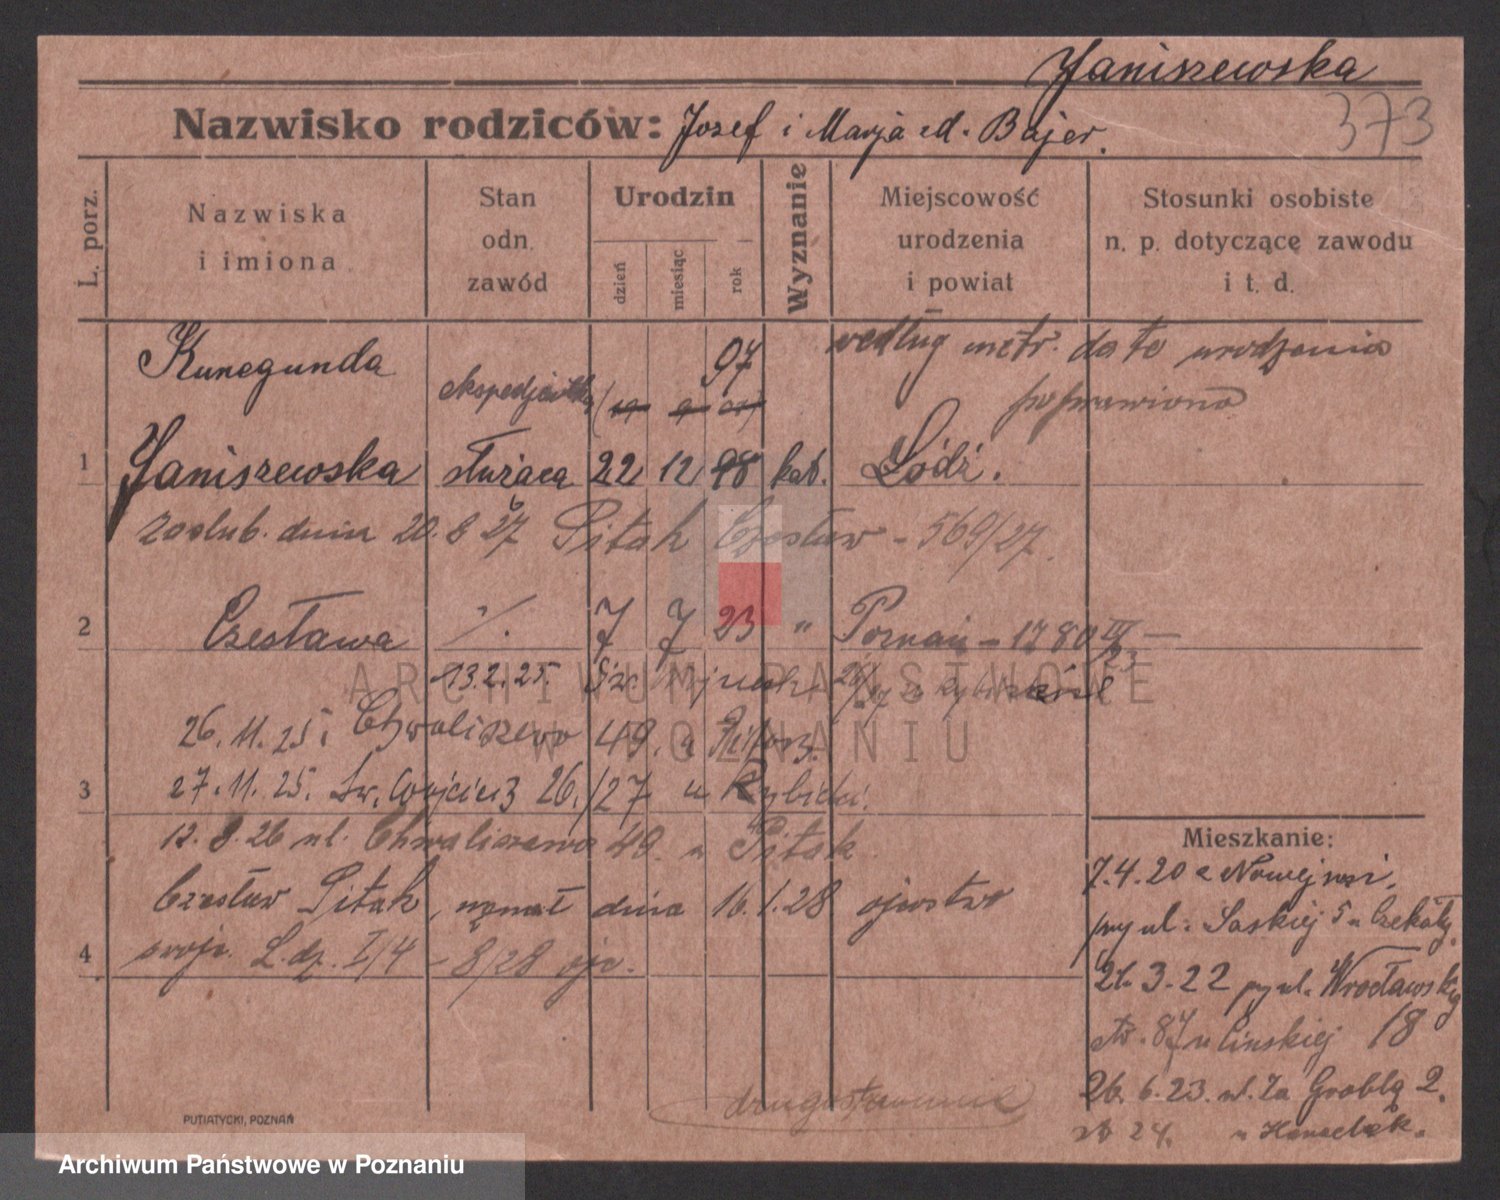 Janiszewska
373
Nazwisko rodziców: Jozef i Marja zd. Bajer.
L. porz.
Nazwiska
i imiona
Stan
odn.
zawód
Urodzin
dzień
miesiąc
rok
Wyznanie
Miejscowość
urodzenia
i powiat
Stosunki osobiste
n. p. dotyczące zawodu
i t. d.
Kunegunda 97 według metr. date urodzenia
ekspedjentka poprawiono
1 Janiszewska służąca 22 12 98 kat. Lódź.
Zaślub. dnia 20. 8 27 Pitak Czesław - 569/27.
2 Czesława ·/. 7 7 23 " Poznań - 1780
13.2.25.
26.11.25. Chwaliszewo 49. u
3 27.11.25. Św. Wojciech 26/27 u
12.8.26 ul. Chwaliszewo 49. u Pitak
Czesław Pitak, uznał dnia 16.1.28. ojcostwo
4 swoje. L. dz. I/4 - 8/28 ojc.
Mieszkanie:
7.4.20 z Nowej wsi.
przy ul. Saskiej 5 u
21.3.22 przy ul. Wrocławskiej
18
26.6.23. ul. Za Groblą 2.
24. u
PUTIATYCKI, POZNAŃ
ARCHIWUM PAŃSTWOWE
W POZNANIU
Archiwum Państwowe w Poznaniu